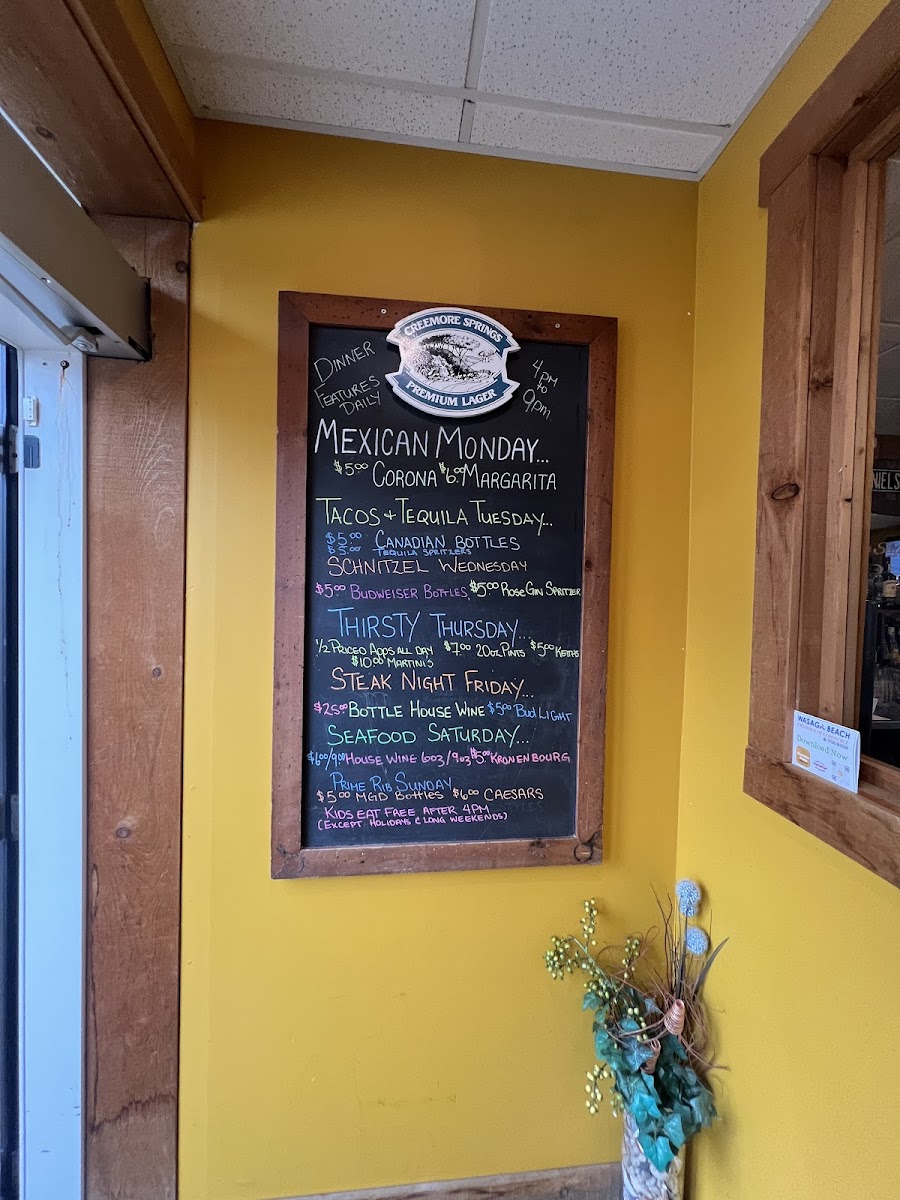 CREEMORE SPRINGS
PREMIUM LAGER
DINNER
FEATURES
DAILY
4PM
to
9PM
MEXICAN MONDAY...
$5.00 CORONA $6.00 MARGARITA
TACOS + TEQUILA TUESDAY...
$5.00 CANADIAN BOTTLES
$5.00 TEQUILA SPRITZERS
SCHNITZEL WEDNESDAY
$5.00 BUDWEISER BOTTLES $5.00 ROSE GIN SPRITZER
THIRSTY THURSDAY...
1/2 PRICED APPS ALL DAY $7.00 20oz PINTS $5.00 KEITHS
$10.00 MARTINI'S
STEAK NIGHT FRIDAY...
$25.00 BOTTLE HOUSE WINE $5.00 BUD LIGHT
SEAFOOD SATURDAY...
$6.00/9.00 HOUSE WINE 6oz/9oz $5.00 KRONENBOURG
PRIME RIB SUNDAY
$5.00 MGD BOTTLES $6.00 CAESARS
KIDS EAT FREE AFTER 4PM
(EXCEPT HOLIDAYS & LONG WEEKENDS)
WASAGA BEACH
& TOURISM
Download Now
NIELS